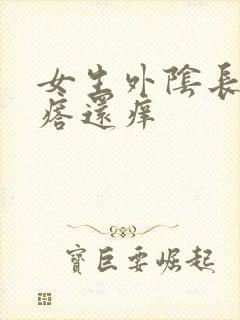 女生外陰長
瘩還痒
寶巨要崛起